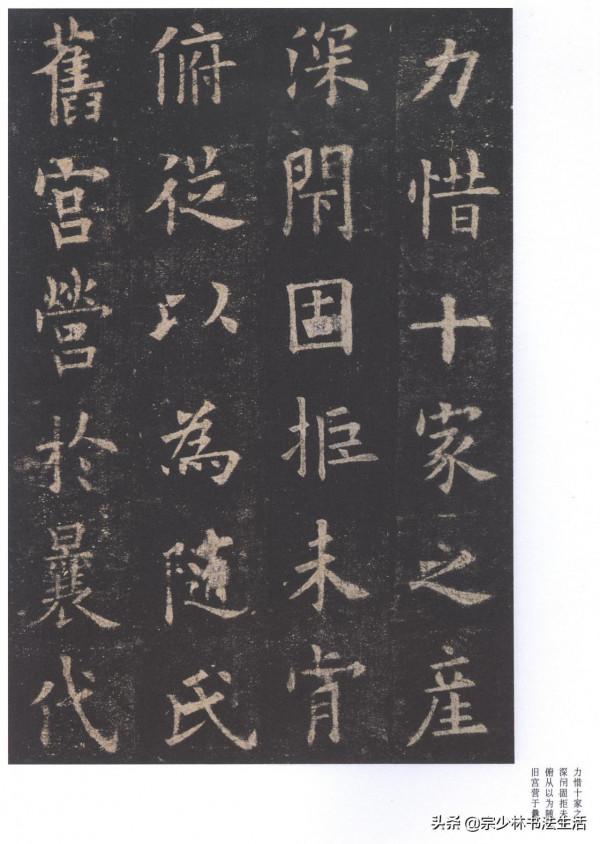 力惜十家之產
深閇固拒未肯
俯從以為隨氏
舊宮營於曩代
力惜十家之
深闭固拒未
俯从以为随
旧宫营于曩
头条 @宗少林书法生活